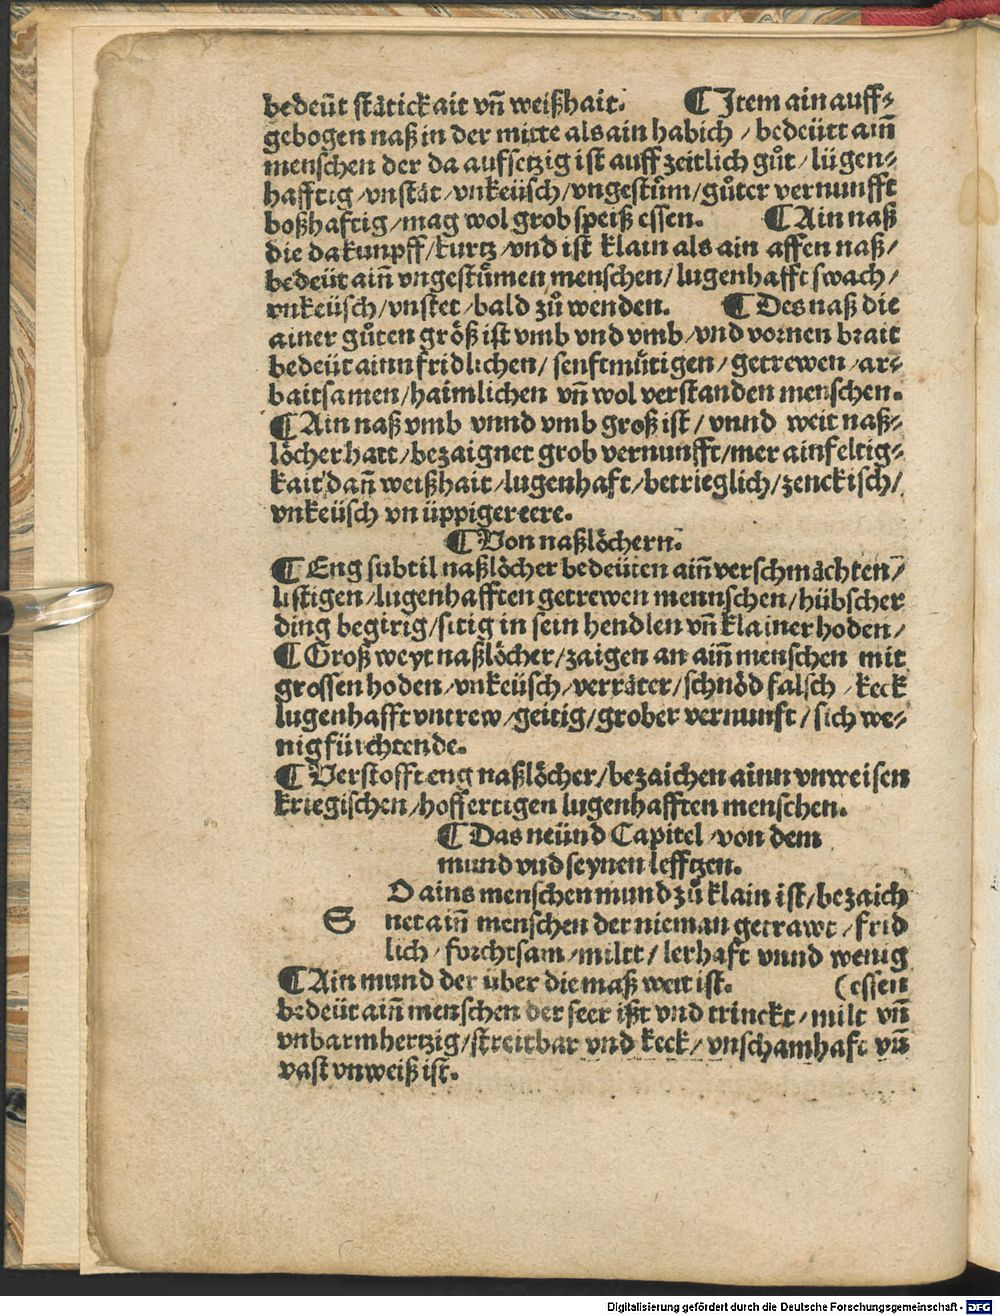 bedeüt stätickait vn̄ weißhait. ¶ Item ain auff⸗
gebogen naß in der mitte als ain habich / bedeütt ain̄
menschen der da aufsetzig ist auff zeitlich gůt / lügen⸗
hafftig / vnstät / vnkeüsch / vngestům / gůter vernunfft
boßhafftig / mag wol grob speiß essen. ¶ Ain naß
die da kunpff / kurtz / vnd ist klain als ain affen naß /
bedeüt ain̄ vngestůmen menschen / lugenhafft swach /
vnkeüsch / vnstet / bald zů wenden. ¶ Des naß die
ainer gůten größ ist vmb vnd vmb / vnd vornen brait
bedeüt ainn fridlichen / senftmůtigen / getrewen / ar⸗
baitsamen / haimlichen vn̄ wol verstanden menschen.
¶ Ain naß vmb vnnd vmb groß ist / vnnd weit naß⸗
löcher hatt / bezaignet grob vernunfft / mer ainfeltig⸗
kait dan̄ weißhait / lugenhaft / betrieglich / zenckisch /
vnkeüsch vn üppiger eere.
¶ Von naßlöchern.
¶ Eng subtil naßlöcher bedeüten ain̄ verschmächten /
listigen / lugenhafften getrewen mennschen / hübscher
ding begirig / sitig in sein hendlen vn̄ klainer hoden /
¶ Groß weyt naßlöcher / zaigen an ain̄ menschen mit
grossen hoden / vnkeüsch / verräter / schnöd falsch / keck
lugenhafft vntrew / geitig / grober vernunft / sich we⸗
nig fürchtende.
¶ Verstofft eng naßlöcher / bezaichen ainn vnweisen
kriegischen / hoffertigen lugenhafften menschen.
¶ Das neünd Capitel / von dem
mund vnd seynen lefftzen.
O ains menschen mund zů klain ist / bezaich
S net ain̄ menschen der nieman getrawt / frid
lich / forchtsam / miltt / lerhaft vnnd wenig
¶ Ain mund der über die maß weit ist. (essen
bedeüt ain̄ menschen der seer ißt vnd trinckt / milt vn̄
vnbarmhertzig / streitbar vnd keck / vnschamhaft vn̄
vast vnweiß ist.
Digitalisierung gefördert durch die Deutsche Forschungsgemeinschaft - DFG